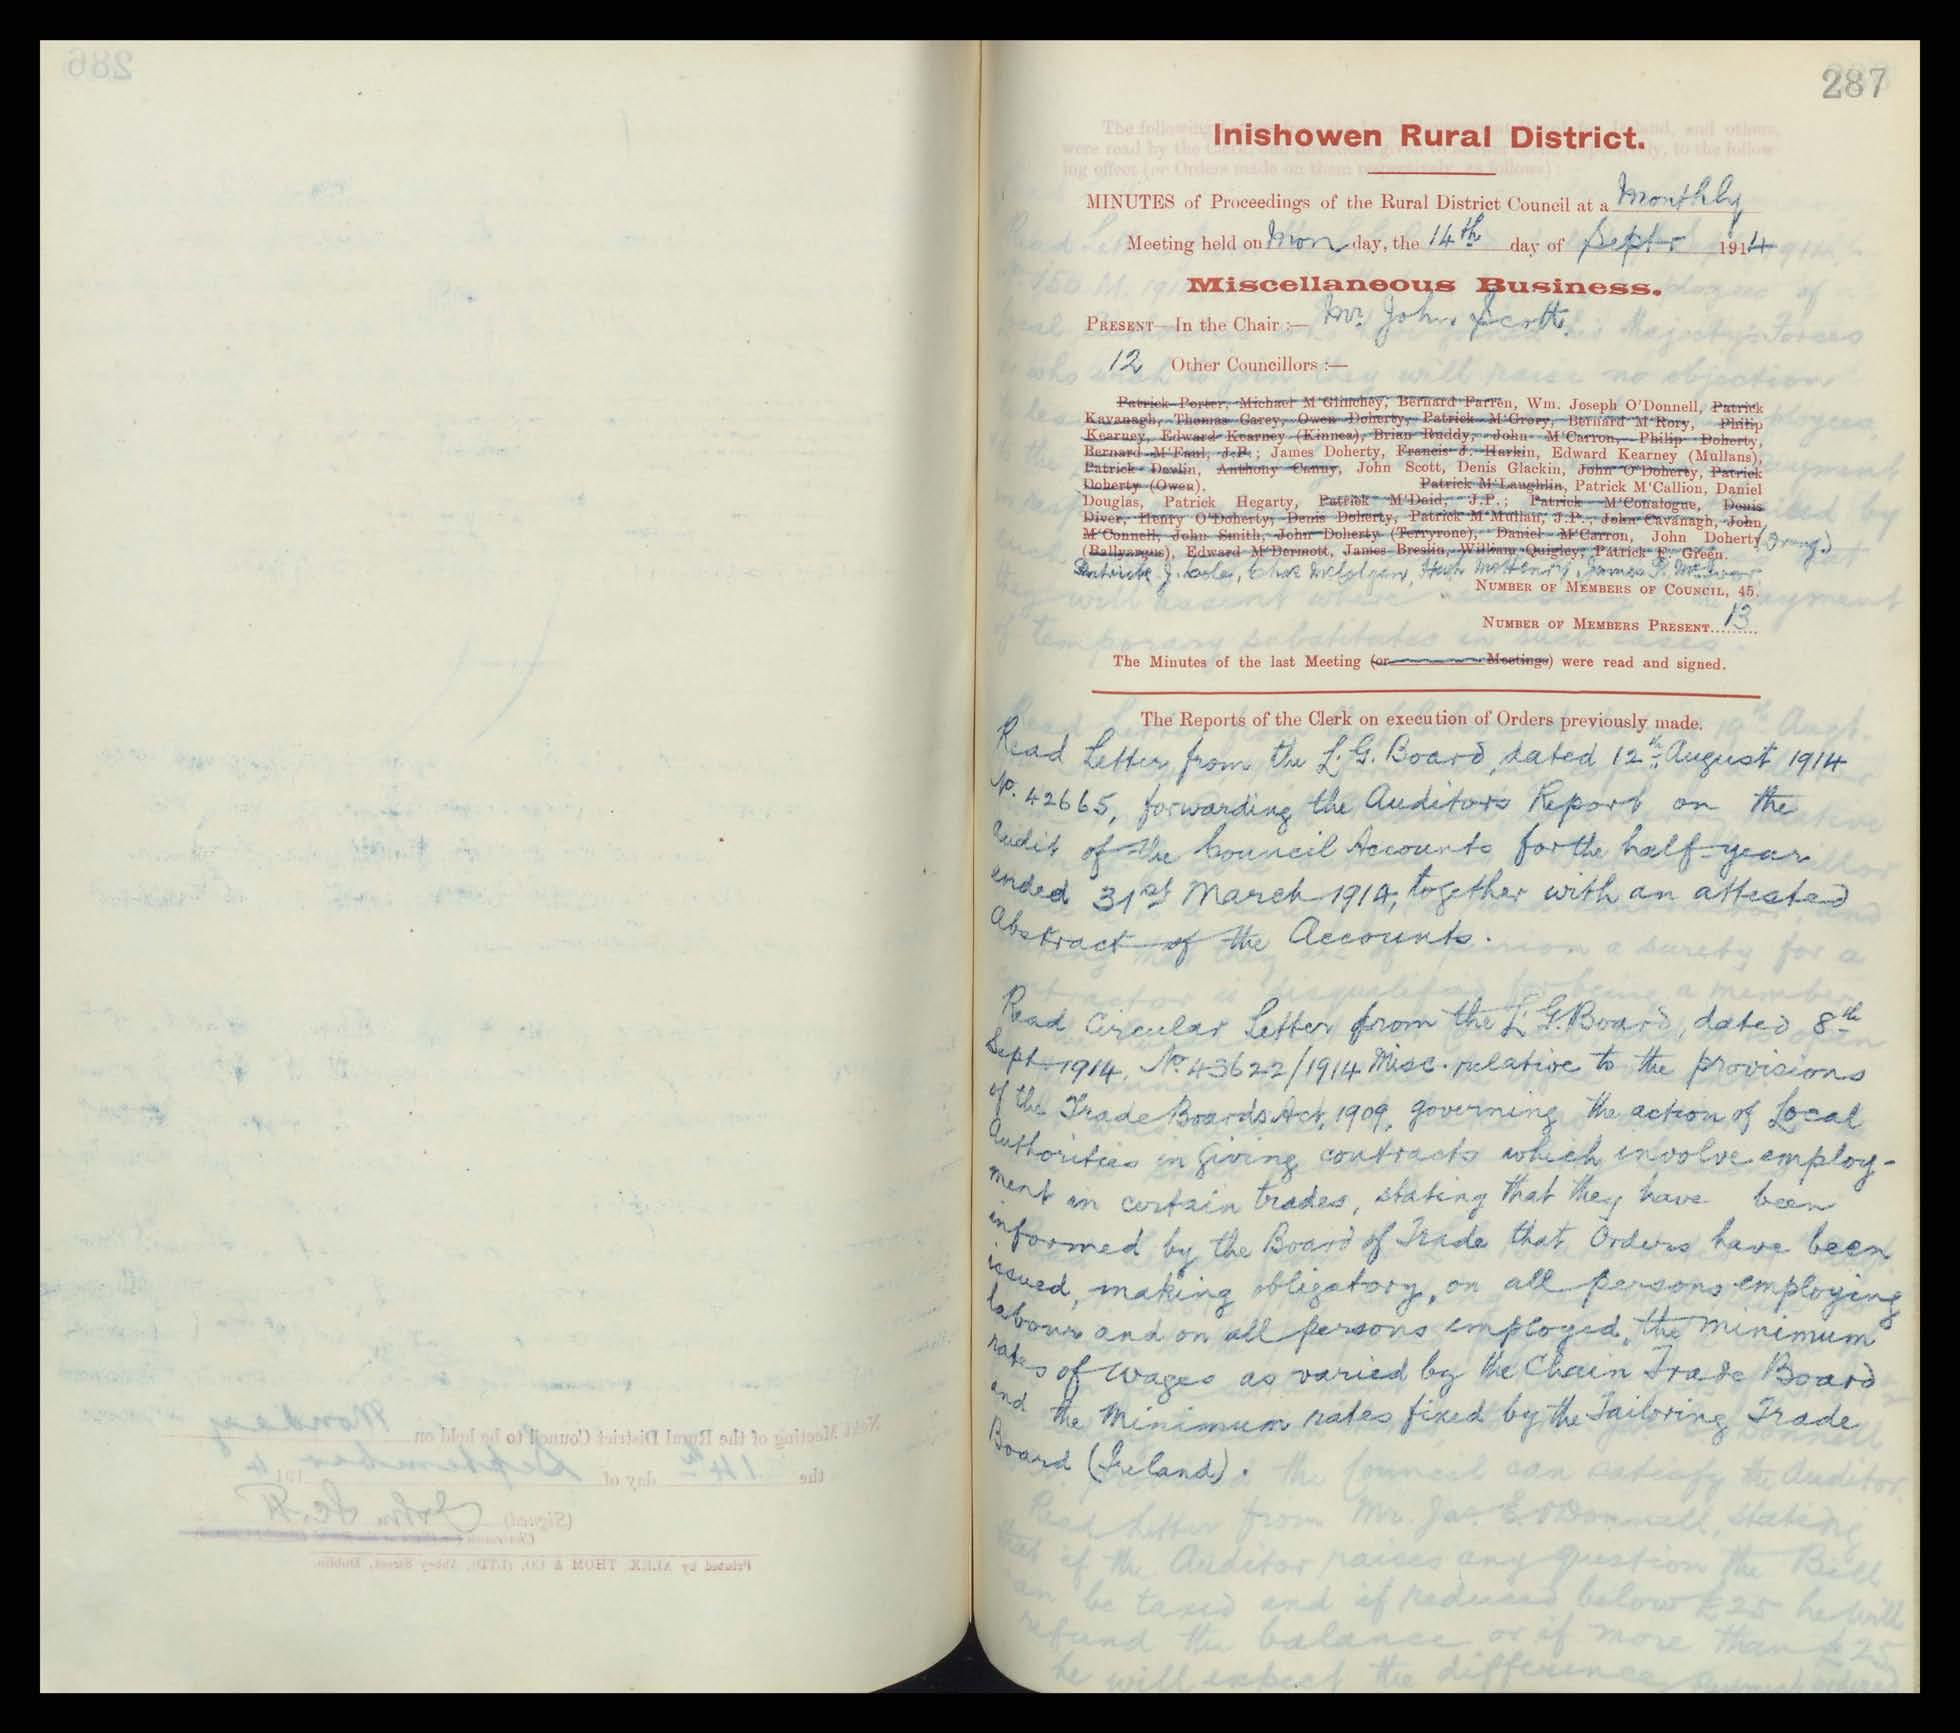 287
Inishowen Rural District.
MINUTES of Proceedings of the Rural District Council at a Monthly
Meeting held on Monday, the 14th day of Septr 1914
Miscellaneous Business.
PRESENT—In the Chair :— Mr. John Scott.
12 Other Councillors :—
Patrick Porter, Michael M'Glinchey, Bernard Farren, Wm. Joseph O'Donnell, Patrick
Kavanagh, Thomas Garey, Owen Doherty, Patrick M'Grory, Bernard M'Rory, Philip
Kearney, Edward Kearney (Kinnea), Brian Ruddy, John M'Carron, Philip Doherty,
Bernard M'Faul, J.P.; James Doherty, Francis J. Harkin, Edward Kearney (Mullans),
Patrick Devlin, Anthony Canny, John Scott, Denis Glackin, John O'Doherty, Patrick
Doherty (Owen). Patrick M'Laughlin, Patrick M'Callion, Daniel
Douglas, Patrick Hegarty, Patrick M'Daid, J.P.; Patrick M'Conalogue, Denis
Diver, Henry O'Doherty, Denis Doherty, Patrick M'Mullan, J.P.; John Cavanagh, John
M'Connell, John Smith, John Doherty (Terryrone), Daniel M'Carron, John Doherty
(Ballyargus), Edward M'Dermott, James Breslin, William Quigley, Patrick F. Green.
Patrick J. Cole, Chas McColgan, Hugh McHenry, James P.
NUMBER OF MEMBERS OF COUNCIL, 45.
NUMBER OF MEMBERS PRESENT........ 13
The Minutes of the last Meeting (or Meetings) were read and signed.
The Reports of the Clerk on execution of Orders previously made.
Read Letter from the L. G. Board, dated 12th August 1914
No. 42665, forwarding the Auditors Report on the
audit of the Council Accounts for the half-year
ended 31st March 1914, together with an attested
Abstract of the Accounts.
Read Circular Letter from the L. G. Board, dated 8th
Sept. 1914, No. 43622/1914 Misc. relative to the provisions
of the Trade Boards Act, 1909, governing the action of Local
Authorities in giving contracts which involve employ-
ment in certain trades, stating that they have been
informed by the Board of Trade that Orders have been
issued, making obligatory, on all persons employing
labour and on all persons employed, the minimum
rates of wages as varied by the Chain Trade Board
and the minimum rates fixed by the Tailoring Trade
Board (Ireland).